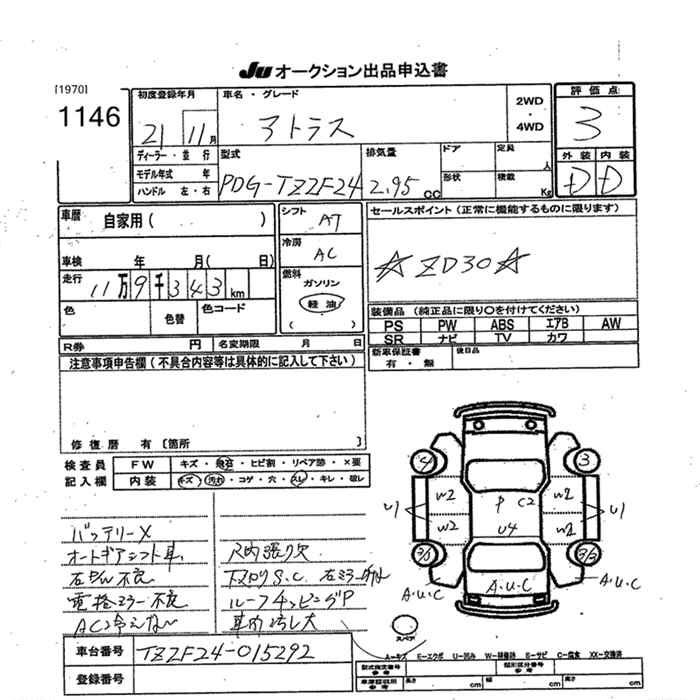 JU オークション出品申込書
[1970]
1146
初度登録年月
21 11月
車名・グレード
アトラス
2WD
・
4WD
評価点
3
ディーラー・並行
モデル年式 年
ハンドル 左・右
型式
PDG-TZ2F24
排気量
2.95 cc
ドア
形状
定員 人
積載 Kg
外装 内装
D D
車歴 自家用( )
車検 年 月( 日)
走行 11万9千343km
色 色替 色コード
シフト AT
冷房 AC
燃料
ガソリン
軽油
( )
セールスポイント(正常に機能するものに限ります)
☆ZD30☆
装備品(純正品に限り○を付けてください)
PS PW ABS エアB AW
SR ナビ TV カワ
R券 円 名変期限 月 日
新車保証書 有・無
後日品
注意事項申告欄(不具合内容等は具体的に記入して下さい)
修復歴 有〔箇所 〕
検査員 FW キズ・飛石・ヒビ割・リペア跡・×要
記入欄 内装 キズ・汚れ・コゲ・穴・スレ・キレ・破レ
バッテリーX
オートギアシフト車 尺内張り欠
不良
電格ミラー不良 ルーフチッピングP
AC冷えない 車内汚レ大
4 3
W2 W2
W2 W2
P C2
U4
U1 U1
A.U.C A.U.C A.U.C
スペア
A-キズ E-エクボ U-凹み W-補修跡 S-サビ C-腐食 XX-交換済
車台番号 TZ2F24-015292
登録番号
型式指定番号 参考 類別区分番号 参考
車庫証明用 参考 長さ cm 幅 cm 高さ cm